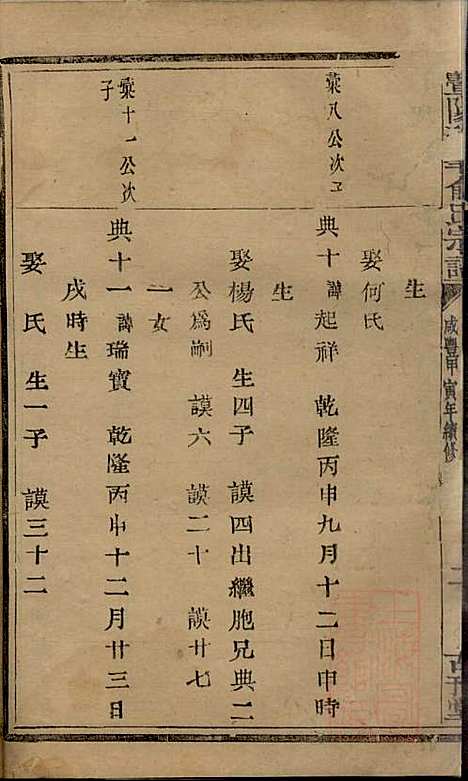 生
娶何氏
彙八公次子
典十 諱起祥 乾隆丙申九月十二日申時
生
娶楊氏 生四子 謨四出繼胞兄典二
公爲嗣 謨六 謨二十 謨廿七
一女
彙十一公次
子
典十一 諱瑞寶 乾隆丙申十二月廿三日
戌時生
娶 氏 生一子 謨三十二
咸豐甲寅年續修